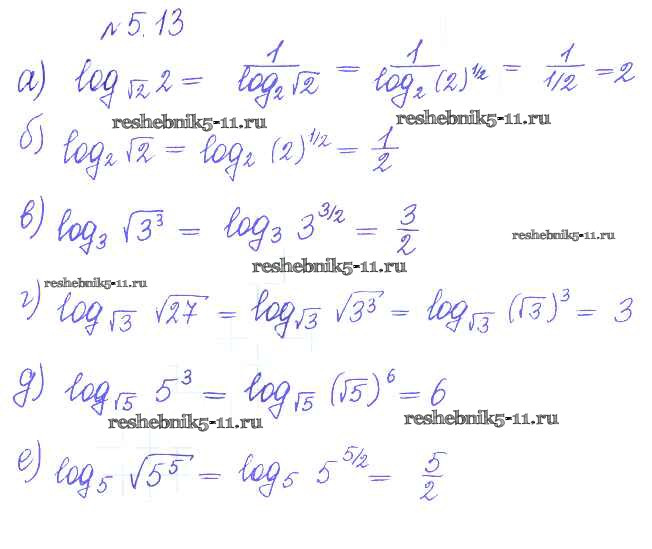 №5.13
а) log_√2 2 = 1/(log_2 √2) = 1/(log_2 (2)^1/2) = 1/(1/2) = 2
reshebnik5-11.ru reshebnik5-11.ru
б) log_2 √2 = log_2 (2)^1/2 = 1/2
в) log_3 √(3^3) = log_3 3^3/2 = 3/2
reshebnik5-11.ru
reshebnik5-11.ru
reshebnik5-11.ru
г) log_√3 √27 = log_√3 √(3^3) = log_√3 (√3)^3 = 3
д) log_√5 5^3 = log_√5 (√5)^6 = 6
reshebnik5-11.ru reshebnik5-11.ru
е) log_5 √(5^5) = log_5 5^5/2 = 5/2